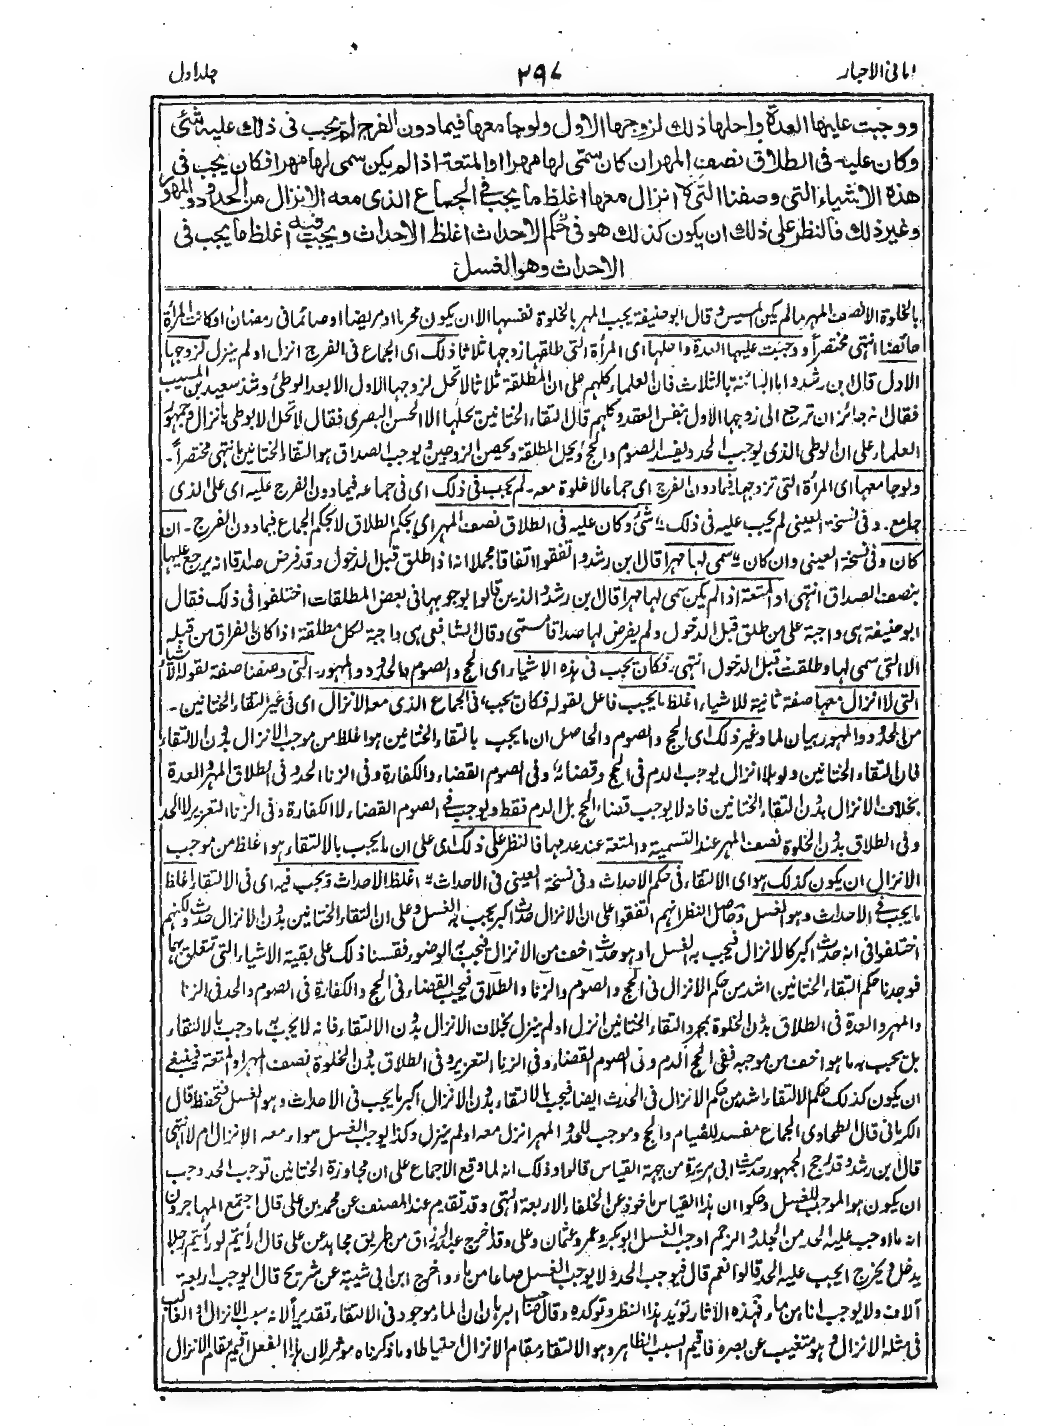 امانى الاحبار ٢٩٧ جلد اول
ووجبت عليها العدة واحلها ذلك لزوجها الاول ولو جامعها فيما دون الفرج لم يجب فى ذلك عليه شئ
وكان عليه فى الطلاق نصف المهر ان كان سمّى لها مهرا او المتعة اذا لم يكن سمى لها مهرا فكان يجب فى
هذه الاشياء التى وصفنا التى لا انزال معها اغلظ ما يجب فى الجماع الذى معه الانزال من الحدود والمهور
وغير ذلك فالنظر على ذلك ان يكون كذلك هو فى حكم الاحداث اغلظ الاحداث ويجب فيه اغلظ ما يجب فى
الاحداث وهو الغسل
بالخلوة الا نصف المهر ما لم يكن المسيس وقال ابو حنيفة يجب المهر بالخلوة نفسها الا ان يكون محرما او مريضا او صائما فى رمضان او كانت المرأة
حائضا انتهى مختصراً ووجبت عليها العدة واحلها اى المرأة التى طلقها زوجها ثلاثا ذلك اى الجماع فى الفرج انزل او لم ينزل لزوجها
الاول قال ابن رشد واما البائنة بالثلاث فان العلماء كلهم على ان المطلقة ثلاثا لا تحل لزوجها الاول الا بعد الوطئ وشذ سعيد بن المسيب
فقال انه جائز ان ترجع الى زوجها الاول بنفس العقد وكلهم قال التقاء الختانين يحلها الا الحسن البصرى فقال لا تحل الا بوطى بانزال وجمهور
العلماء على ان الوطى الذى يوجب الحد ويفسد الصوم والحج ويحل المطلقة ويحصن الزوجين ويوجب الصداق هو التقاء الختانين انتهى مختصراً۔
ولو جامعها اى المرأة التى تزوجها فيما دون الفرج اى جماعا لا خلوة معه۔ لم يجب فى ذلك اى فى جماعه فيما دون الفرج عليه اى على الذى
جامع۔ وفى نسخة العينى لم يجب عليه فى ذلك شئ وكان عليه فى الطلاق نصف المهر اى بحكم الطلاق لا بحكم الجماع فيما دون الفرج۔ ان
كان وفى نسخة العينى وان كان سمى لها مهرا قال ابن رشد واتفقوا اتفاقا مجملا انه اذا طلق قبل الدخول وقد فرض صداقا انه يرجع عليها
بنصف الصداق انتهى او المتعة اذا لم يكن سمى لها مهرا قال ابن رشد والذين قالوا بوجوبها فى بعض المطلقات اختلفوا فى ذلك فقال
ابو حنيفة هى واجبة على من طلق قبل الدخول ولم يفرض لها صداقا مسمى وقال الشافعى هى واجبة لكل مطلقة اذا كان الفراق من قبله
الا التى سمى لها وطلقت قبل الدخول انتهى۔ فكان يجب فى هذه الاشياء اى الحج والصوم والحدود والمهور۔ التى وصفنا صفة لقوله الاشياء
التى لا انزال معها صفة ثانية للاشياء اغلظ ما يجب فاعل لقوله فكان يجب، فى الجماع الذى معه الانزال اى فى غير التقاء الختانين۔
من الحدود والمهور بيان لما وغير ذلك اى الحج والصوم والحاصل ان ما يجب بالتقاء الختانين هو اغلظ من موجب الانزال بدون الالتقاء
فان التقاء الختانين ولو بلا انزال يوجب الدم فى الحج وقضائه وفى الصوم القضاء والكفارة وفى الزنا الحد وفى الطلاق المهر والعدة
بخلاف الانزال بدون التقاء الختانين فانه لا يوجب قضاء الحج بل الدم فقط ويوجب فى الصوم القضاء لا الكفارة وفى الزنا التعزير لا الحد
وفى الطلاق بدون الخلوة نصف المهر عند التسمية والمتعة عند عدمها فالنظر على ذلك اى على ان ما يجب بالالتقاء هو اغلظ من موجب
الانزال ان يكون كذلك هو اى الالتقاء فى حكم الاحداث وفى نسخة العينى فى الاحداث اغلظ الاحداث ويجب فيه اى فى الالتقاء اغلظ
ما يجب فى الاحداث وهو الغسل وحاصل النظر انهم اتفقوا على ان الانزال حدث اكبر يجب به الغسل وعلى ان التقاء الختانين بدون الانزال حدث ولكنهم
اختلفوا فى انه حدث اكبر كالانزال فيجب به الغسل او هو حدث اخف من الانزال فيجب به الوضوء فقسنا ذلك على بقية الاشياء التى تتعلق بهما
فوجدنا حكم التقاء الختانين اشد من حكم الانزال فى الحج والصوم والزنا والطلاق فيجب القضاء فى الحج والكفارة فى الصوم والحد فى الزنا
والمهر والعدة فى الطلاق بدون الخلوة بمجرد التقاء الختانين انزل او لم ينزل بخلاف الانزال بدون الالتقاء فانه لا يجب به ما وجب بالالتقاء
بل يجب به ما هو اخف من موجبه ففى الحج الدم وفى الصوم القضاء وفى الزنا التعزير وفى الطلاق بدون الخلوة نصف المهر او المتعة فينبغى
ان يكون كذلك حكم الالتقاء اشد من حكم الانزال فى الحدث ايضا فيجب بالالتقاء بدون الانزال اكبر ما يجب فى الاحداث وهو الغسل فتحفظ قال
الكرمانى قال الطحاوى الجماع مفسد للصيام والحج وموجب للحد والمهر انزل معه او لم ينزل وكذا يوجب الغسل سواء معه الانزال ام لا انتهى
قال ابن رشد وقد رجح الجمهور حديث ابى هريرة من جهة القياس قالوا وذلك انه لما وقع الاجماع على ان مجاوزة الختانين توجب الحد وجب
ان يكون هو الموجب للغسل وحكوا ان هذا القياس ماخوذ عن الخلفاء الاربعة انتهى وقد تقدم عند المصنف عن محمد بن على قال اجتمع المهاجرون
انه ما اوجب عليه الحد من الجلد والرجم اوجب الغسل ابو بكر وعمر وعثمان وعلى وقد اخرج عبد الرزاق من طريق مجاهد عن على قال أرأيتم لو رأيتم رجلا
يدخل ويخرج ايجب عليه الحد قالوا نعم قال فيوجب الحد ولا يوجب الغسل صاعا من ماء واخرج ابن ابى شيبة عن شريح قال ايوجب اربعة
آلاف ولا يوجب اناء من ماء فهذه الآثار تؤيد هذا النظر وتوكده وقال صاحب البرهان ان الماء موجود فى الالتقاء تقديراً لانه سبب الانزال اذ الغالب
فى مثله الانزال وهو متغيب عن بصره فاقيم السبب الظاهر وهو الالتقاء مقام الانزال احتياطا وما ذكرناه موثر لان هذا الفعل اقيم مقام الانزال